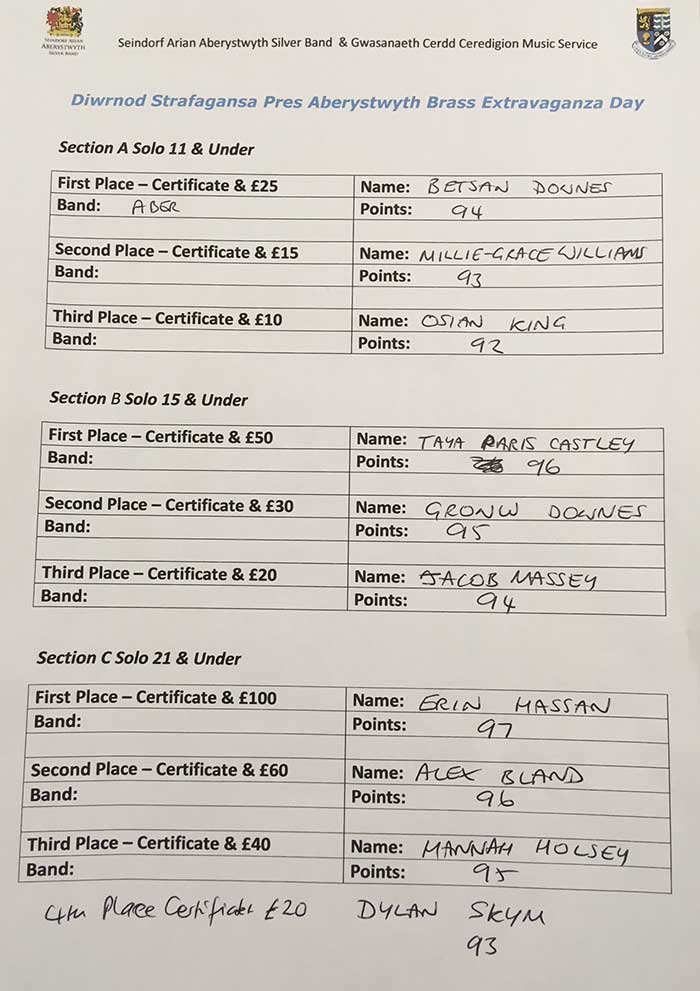 SEINDORF ARIAN
ABERYSTWYTH
SILVER BAND
Seindorf Arian Aberystwyth Silver Band & Gwasanaeth Cerdd Ceredigion Music Service
Diwrnod Strafagansa Pres Aberystwyth Brass Extravaganza Day
Section A Solo 11 & Under
First Place – Certificate & £25 Name: BETSAN DOWNES
Band: ABER Points: 94
Second Place – Certificate & £15 Name: MILLIE-GRACE WILLIAMS
Band: Points: 93
Third Place – Certificate & £10 Name: OSIAN KING
Band: Points: 92
Section B Solo 15 & Under
First Place – Certificate & £50 Name: TAYA PARIS CASTLEY
Band: Points: 96
Second Place – Certificate & £30 Name: GRONW DOWNES
Band: Points: 95
Third Place – Certificate & £20 Name: JACOB MASSEY
Band: Points: 94
Section C Solo 21 & Under
First Place – Certificate & £100 Name: ERIN HASSAN
Band: Points: 97
Second Place – Certificate & £60 Name: ALEX BLAND
Band: Points: 96
Third Place – Certificate & £40 Name: HANNAH HOLSEY
Band: Points: 95
4th Place Certificate £20 DYLAN SKYM
93